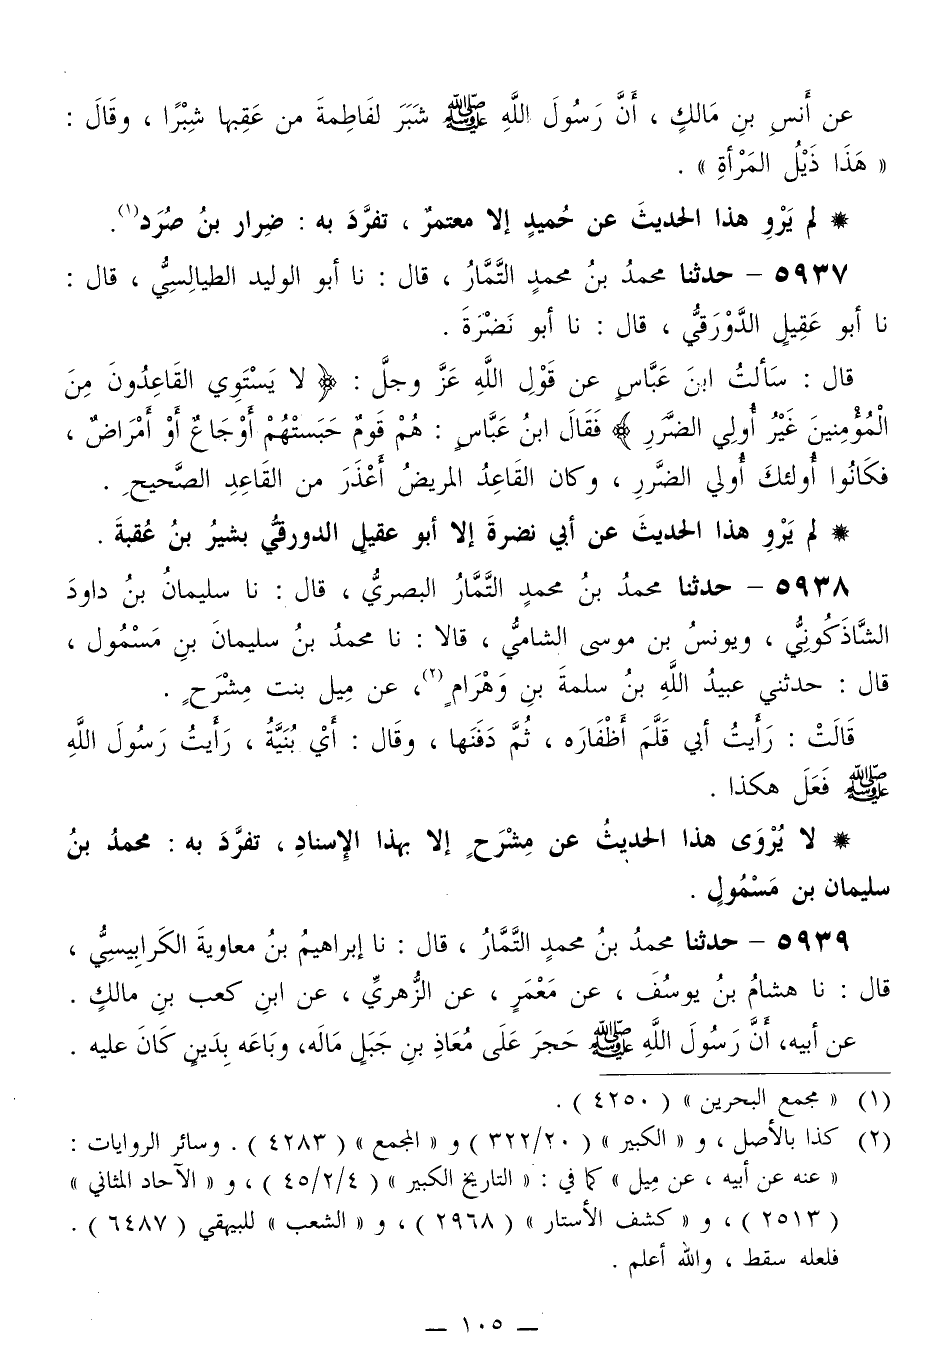 عن أَنسِ بنِ مَالكٍ ، أَنَّ رَسُولَ اللَّهِ ﷺ شَبَرَ لفَاطِمةَ من عَقِبها شِبْرًا ، وقَالَ :
« هَذَا ذَيْلُ المَرْأةِ » .
* لم يَرْوِ هذا الحديثَ عن حُميدٍ إلا معتمرٌ ، تفرَّدَ به : ضِرار بنُ صُرَد(١).
٥٩٣٧ – حدثنا محمدُ بنُ محمدٍ التَّمَّارُ ، قال : نا أبو الوليد الطيالِسيُّ ، قال :
نا أبو عَقِيلٍ الدَّوْرَقيُّ ، قال : نا أبو نَضْرَةَ .
قال : سَألتُ ابنَ عَبَّاسٍ عن قَوْلِ اللَّهِ عَزَّ وجلَّ : ﴿ لا يَسْتَوِي القَاعِدُونَ مِنَ
الْمُؤْمِنينَ غَيْرُ أُولِي الضَّرَرِ ﴾ فَقَالَ ابنُ عَبَّاسٍ : هُمْ قَومٌ حَبَستْهُمْ أوْجَاعٌ أوْ أمْرَاضٌ ،
فكَانُوا أُولئكَ أُولي الضَّررِ ، وكان القَاعِدُ المريضُ أعْذَرَ من القَاعِدِ الصَّحيحِ .
* لم يَرْوِ هذا الحديثَ عن أبي نضرةَ إلا أبو عقيلٍ الدورقيُّ بشيرُ بنُ عُقبةَ .
٥٩٣٨ – حدثنا محمدُ بنُ محمدٍ التَّمَّارُ البصريُّ ، قال : نا سليمانُ بنُ داودَ
الشَّاذَكُونِيُّ ، ويونسُ بن موسى الشاميُّ ، قالا : نا محمدُ بنُ سليمانَ بنِ مَسْمُول ،
قال : حدثني عبيدُ اللَّهِ بنُ سلمةَ بنِ وَهْرَامٍ(٢)، عن مِيل بنت مِشْرَحٍ .
قَالَتْ : رَأيتُ أبي قَلَّمَ أظْفَارَه ، ثُمَّ دَفَنَها ، وقال : أيْ بُنَيَّةُ ، رَأيتُ رَسُولَ اللَّهِ
ﷺ فَعَلَ هكذا .
* لا يُرْوَى هذا الحديثُ عن مِشْرَحٍ إلا بهذا الإسنادِ ، تفرَّدَ به : محمدُ بنُ
سليمان بن مَسْمُولٍ .
٥٩٣٩ – حدثنا محمدُ بنُ محمدٍ التَّمَّارُ ، قال : نا إبراهيمُ بنُ معاويةَ الكَرابِيسيُّ ،
قال : نا هشامُ بنُ يوسُفَ ، عن مَعْمَرٍ ، عن الزُّهريِّ ، عن ابنِ كعب بنِ مالكٍ .
عن أبيه، أنَّ رَسُولَ اللَّهِ ﷺ حَجَرَ عَلَى مُعَاذِ بنِ جَبَلٍ مَالَه، وبَاعَه بِدَينٍ كَانَ عليه .
(١) « مجمع البحرين » ( ٤٢٥٠ ) .
(٢) كذا بالأصل ، و « الكبير » ( ٣٢٢/٢٠ ) و « المجمع » ( ٤٢٨٣ ) . وسائر الروايات :
« عنه عن أبيه ، عن مِيل » كما في : « التاريخ الكبير » ( ٤٥/٢/٤ ) ، و « الآحاد المثاني »
( ٢٥١٣ ) ، و « كشف الأستار » ( ٢٩٦٨ ) ، و « الشعب » للبيهقي ( ٦٤٨٧ ) .
فلعله سقط ، والله أعلم .
— ١٠٥ —